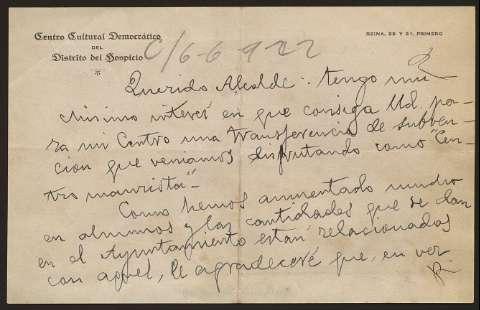 Centro Cultural Democrático
DEL
Distrito del Hospicio
REINA, 29 Y 31, PRIMERO
C/6-6-922
Querido Alcalde: tengo mu-
chisimo interés en que consiga Ud. pa-
ra mi Centro una transferencia de subven-
cion que veniamos disfrutando como "Cen-
tro maurista".-
Como hemos aumentado mucho
en alumnos y las cantidades que se dan
en el Ayuntamiento están relacionadas
con aquel, le agradeceré que, en vez